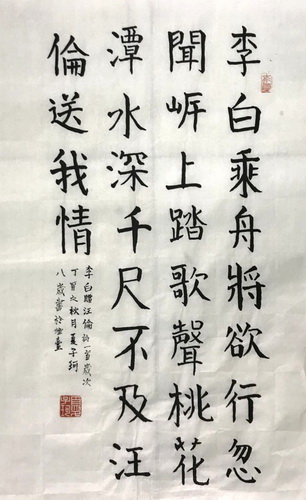 李白乘舟將欲行忽
聞岸上踏歌聲桃花
潭水深千尺不及汪
倫送我情
李白贈汪倫
歲次
丁酉之秋月夏子珂
八歲書於